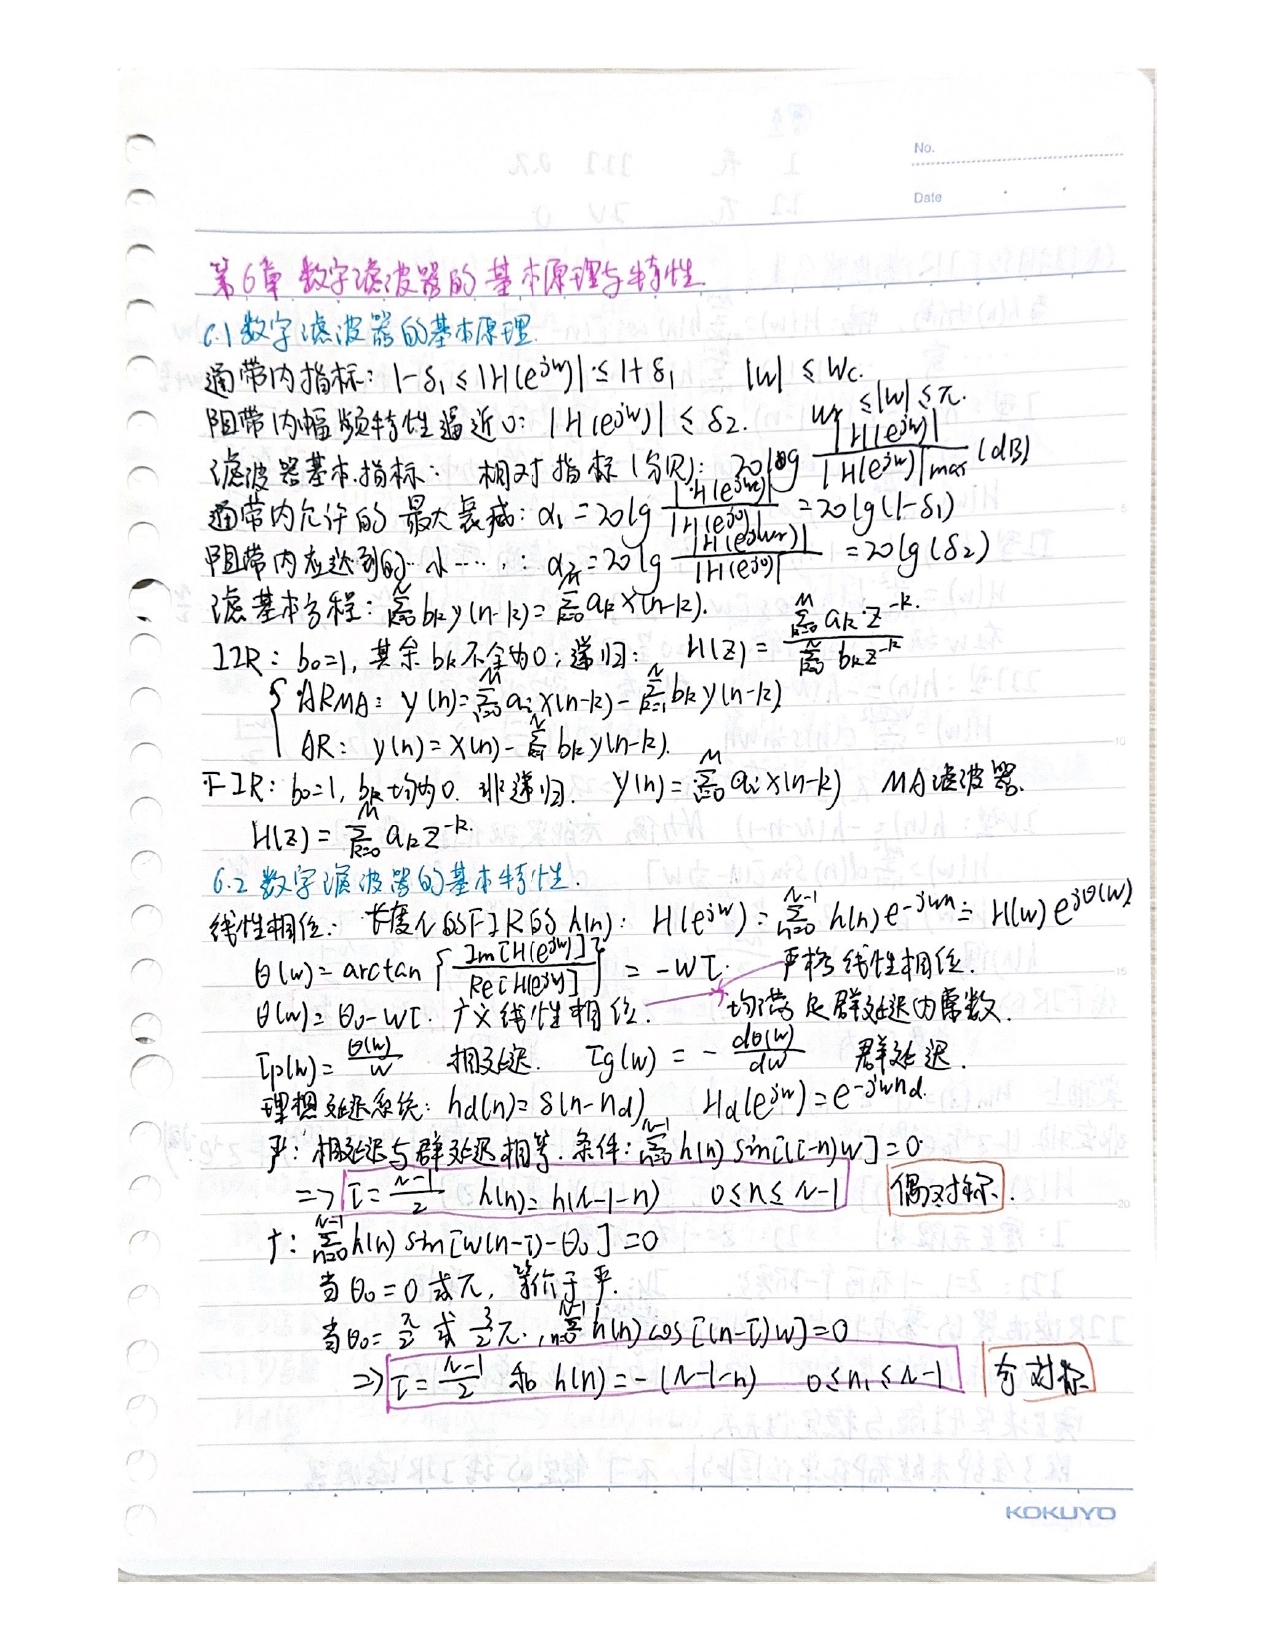 No.
Date
第6章 数字滤波器的基本原理与特性
6.1 数字滤波器的基本原理
通带内指标: 1-δ₁ ≤ |H(e^{jw})| ≤ 1+δ₁ |w| ≤ wc.
阻带内幅频特性逼近0: |H(e^{jw})| ≤ δ2. wr ≤ |w| ≤ π.
滤波器基本指标: 相对指标(分贝): 20log |H(e^{jw})| / |H(e^{jw})|max (dB)
通带内允许的最大衰减: α₁ = 20lg |H(e^{jwc})| / |H(e^{j0})| = 20lg(1-δ₁)
阻带内应达到的…小……: α₂ = 20lg |H(e^{jwr})| / |H(e^{j0})| = 20lg(δ2)
滤基本方程: Σ_{k=0}^{N} bk y(n-k) = Σ_{k=0}^{M} ak x(n-k).
IIR: b0=1, 其余bk不全为0; 递归: H(z) = Σ_{k=0}^{M} ak z^{-k} / Σ_{k=0}^{N} bk z^{-k}
ARMA: y(n) = Σ_{i=0}^{M} ai x(n-k) - Σ_{k=1}^{N} bk y(n-k)
AR: y(n) = x(n) - Σ_{k=1}^{N} bk y(n-k).
FIR: b0=1, bk均为0. 非递归. y(n) = Σ_{i=0}^{M} ai x(n-k) MA滤波器.
H(z) = Σ_{k=0}^{M} ak z^{-k}.
6.2 数字滤波器的基本特性.
线性相位: 长度N的FIR的h(n): H(e^{jw}) = Σ_{n=0}^{N-1} h(n) e^{-jwn} = H(w) e^{jθ(w)}
θ(w) = arctan { Im[H(e^{jw})] / Re[H(e^{jw})] } = -wτ. 严格线性相位.
θ(w) = θ0-wτ. 广义线性相位. 均满足群延迟为常数.
τp(w) = θ(w)/w 相延迟. τg(w) = - dθ(w)/dw 群延迟.
理想延迟系统: hd(n) = δ(n-nd) Hd(e^{jw}) = e^{-jwnd}.
严: 相延迟与群延迟相等. 条件: Σ_{n=0}^{N-1} h(n) sin[(τ-n)w] = 0
=> τ = (N-1)/2 h(n) = h(N-1-n) 0≤n≤N-1 偶对称.
广: Σ_{n=0}^{N-1} h(n) sin[w(n-τ)-θ0] = 0
当θ0 = 0 或 π, 等价于严.
当θ0 = π/2 或 3/2 π. Σ_{n=0}^{N-1} h(n) cos[(n-τ)w] = 0
=> τ = (N-1)/2 和 h(n) = -(N-1-n) 0≤n≤N-1 奇对称
KOKUYO